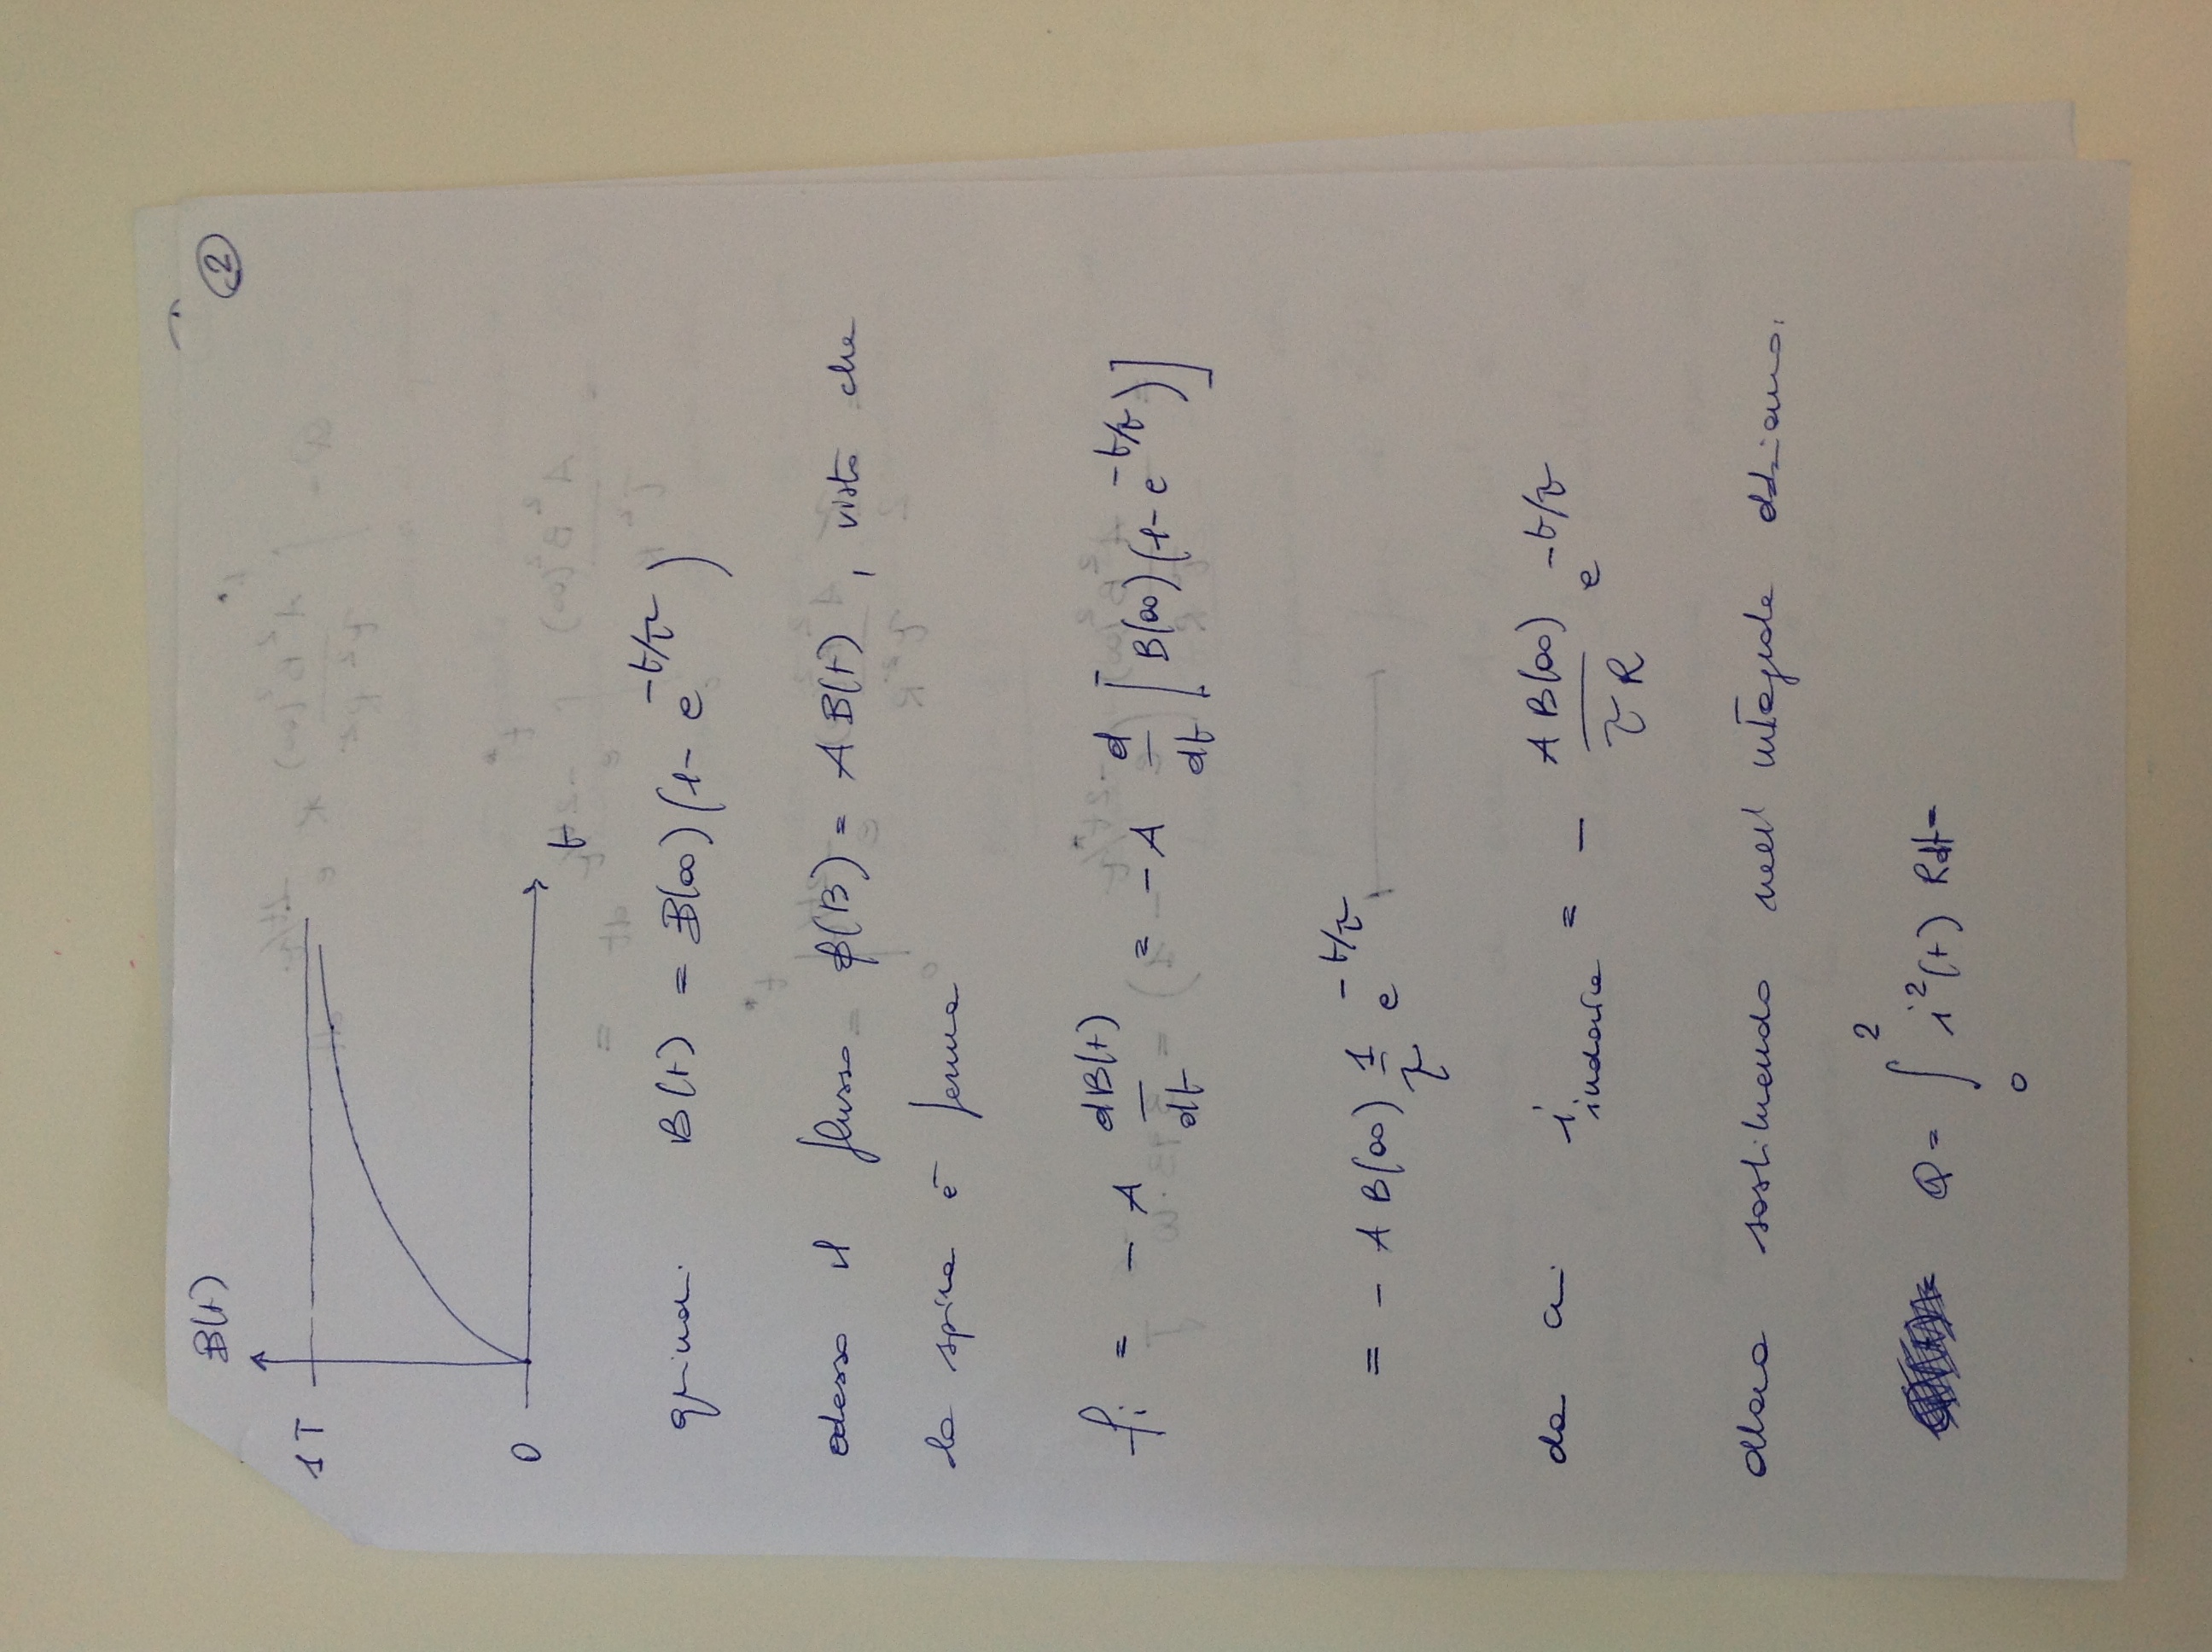 ②
B(t)
1 T
0
t
quindi B(t) = B(∞)(1- e^{-t/τ})
adesso il flusso ϕ(B) = A B(t) , visto che
la spira è ferma
f_i = - A dB(t)/dt = - A d/dt [B(∞)(1- e^{-t/τ})]
= - A B(∞) 1/τ e^{-t/τ}
da cui i_{indotta} = - A B(∞)/τR e^{-t/τ}
allora sostituendo nell'integrale abbiamo:
Q = ∫_0^2 i²(t) R dt =